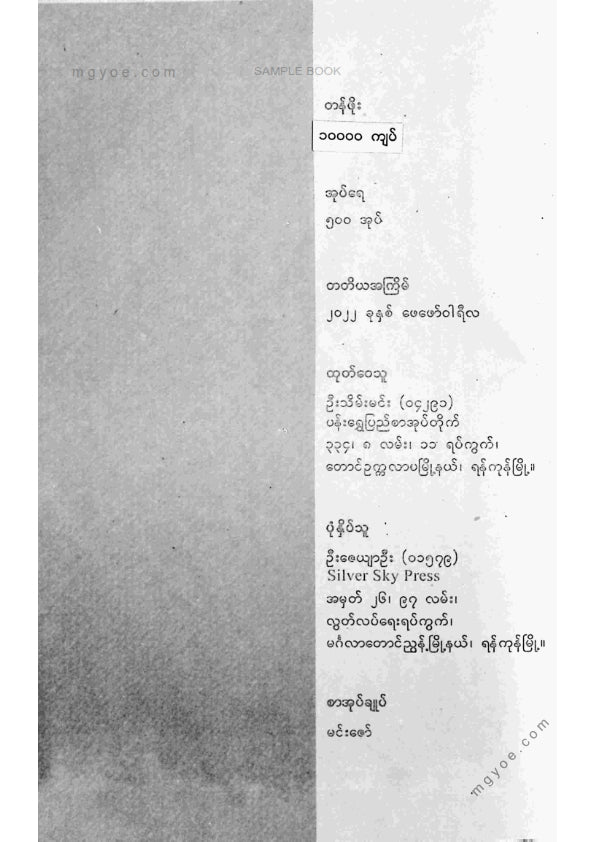 mgyoe.com SAMPLE BOOK
တန်ဖိုး
၁၀၀၀၀ ကျပ်
အုပ်ရေ
၅၀၀ အုပ်
တတိယအကြိမ်
၂၀၂၂ ခုနှစ် ဖေဖော်ဝါရီလ
ထုတ်ဝေသူ
ဦးသိမ်းမင်း (၀၄၂၉၁)
ပန်းရွှေပြည်စာအုပ်တိုက်
၃၃၄၊ ၈ လမ်း၊ ၁၁ ရပ်ကွက်၊
တောင်ဥက္ကလာပမြို့နယ်၊ ရန်ကုန်မြို့။
ပုံနှိပ်သူ
ဦးဇေယျာဦး (၀၁၅၇၉)
Silver Sky Press
အမှတ် ၂၆၊ ၉၇ လမ်း၊
လွတ်လပ်ရေးရပ်ကွက်၊
မင်္ဂလာတောင်ညွန့်မြို့နယ်၊ ရန်ကုန်မြို့။
စာအုပ်ချုပ်
မင်းဇော်
mgyoe.com